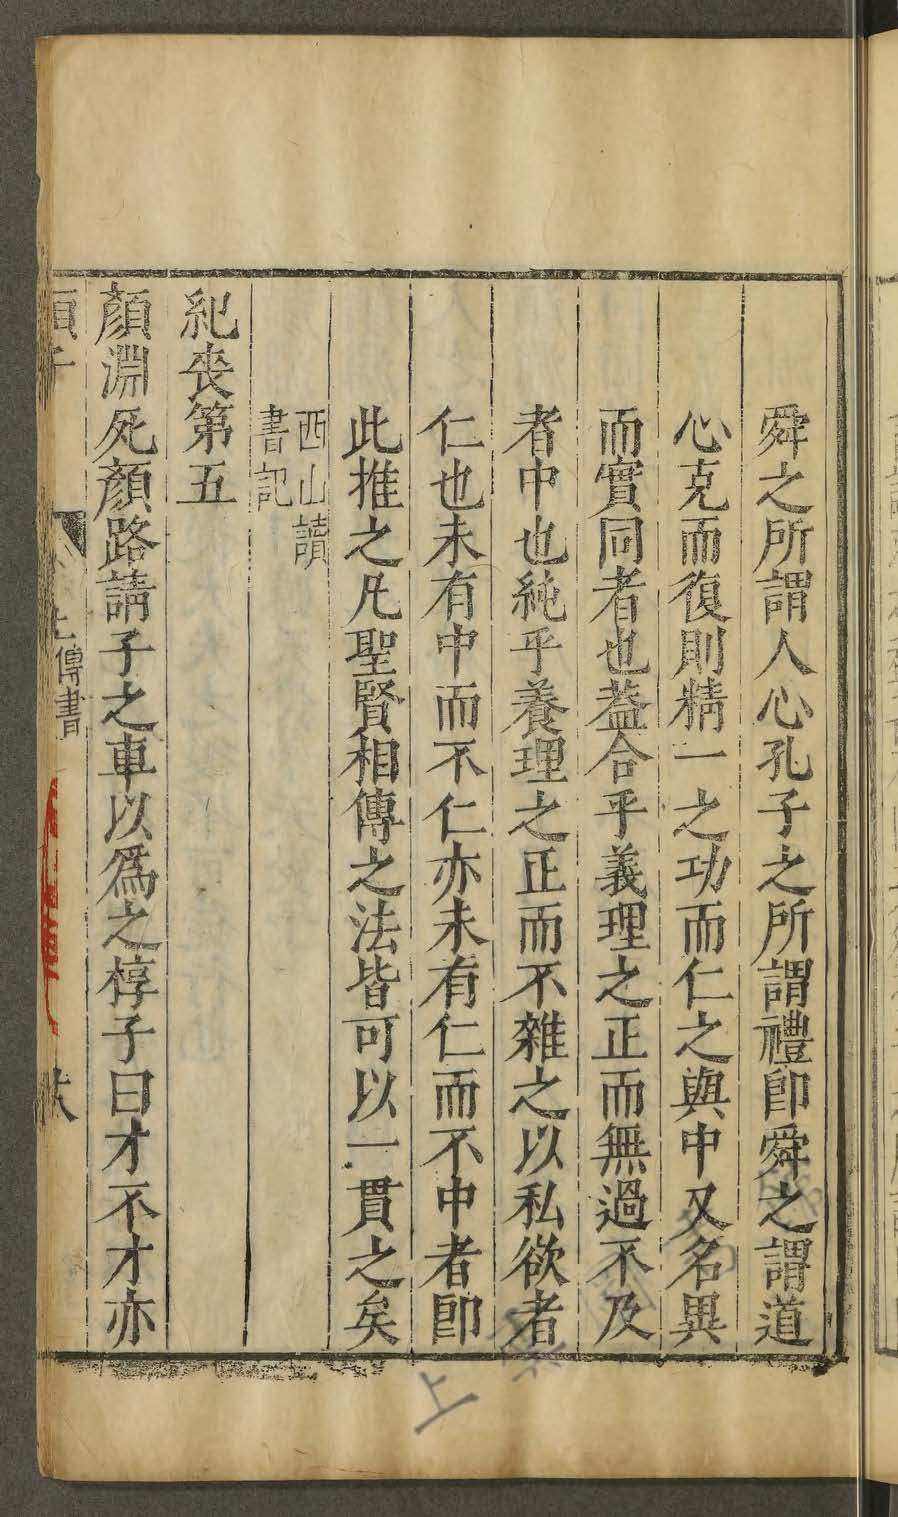 舜之所謂人心孔子之所謂禮即舜之謂道
心克而復則精一之功而仁之與中又名異
而實同者也葢合乎義理之正而無過不及
者中也純乎養理之正而不雜之以私欲者
仁也未有中而不仁亦未有仁而不中者即
此推之凡聖賢相傳之法皆可以一貫之矣
西山讀
書記
紀喪第五
顏淵死顏路請子之車以爲之椁子曰才不才亦
上傳書
上